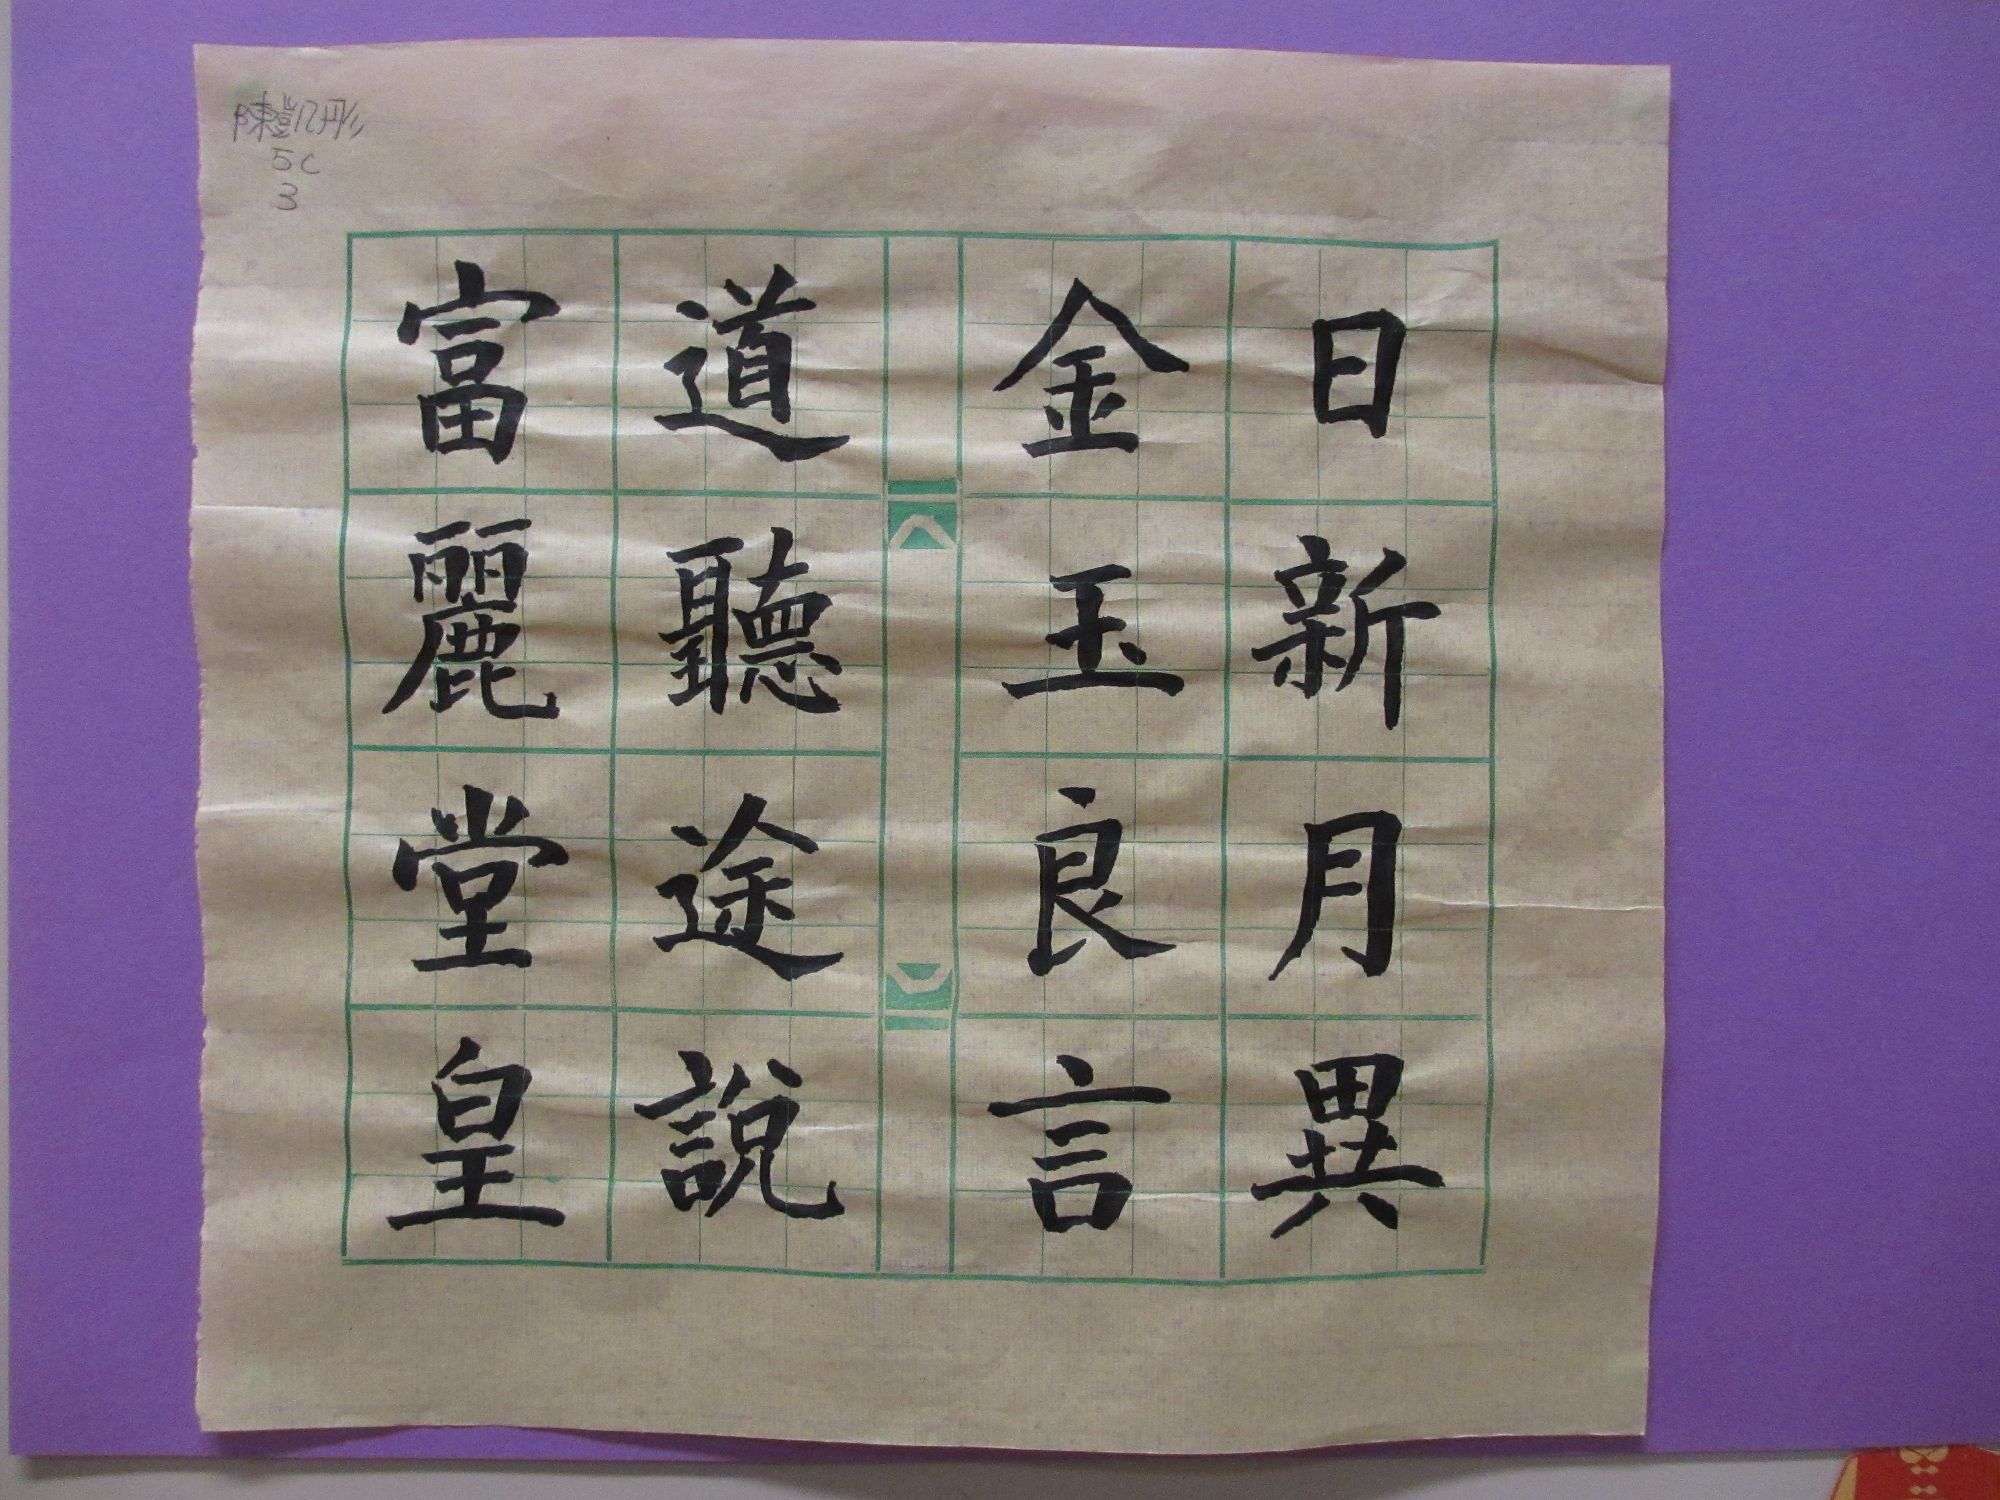 陳凱彤
5C
3
日新月異
金玉良言
道聽途說
富麗堂皇